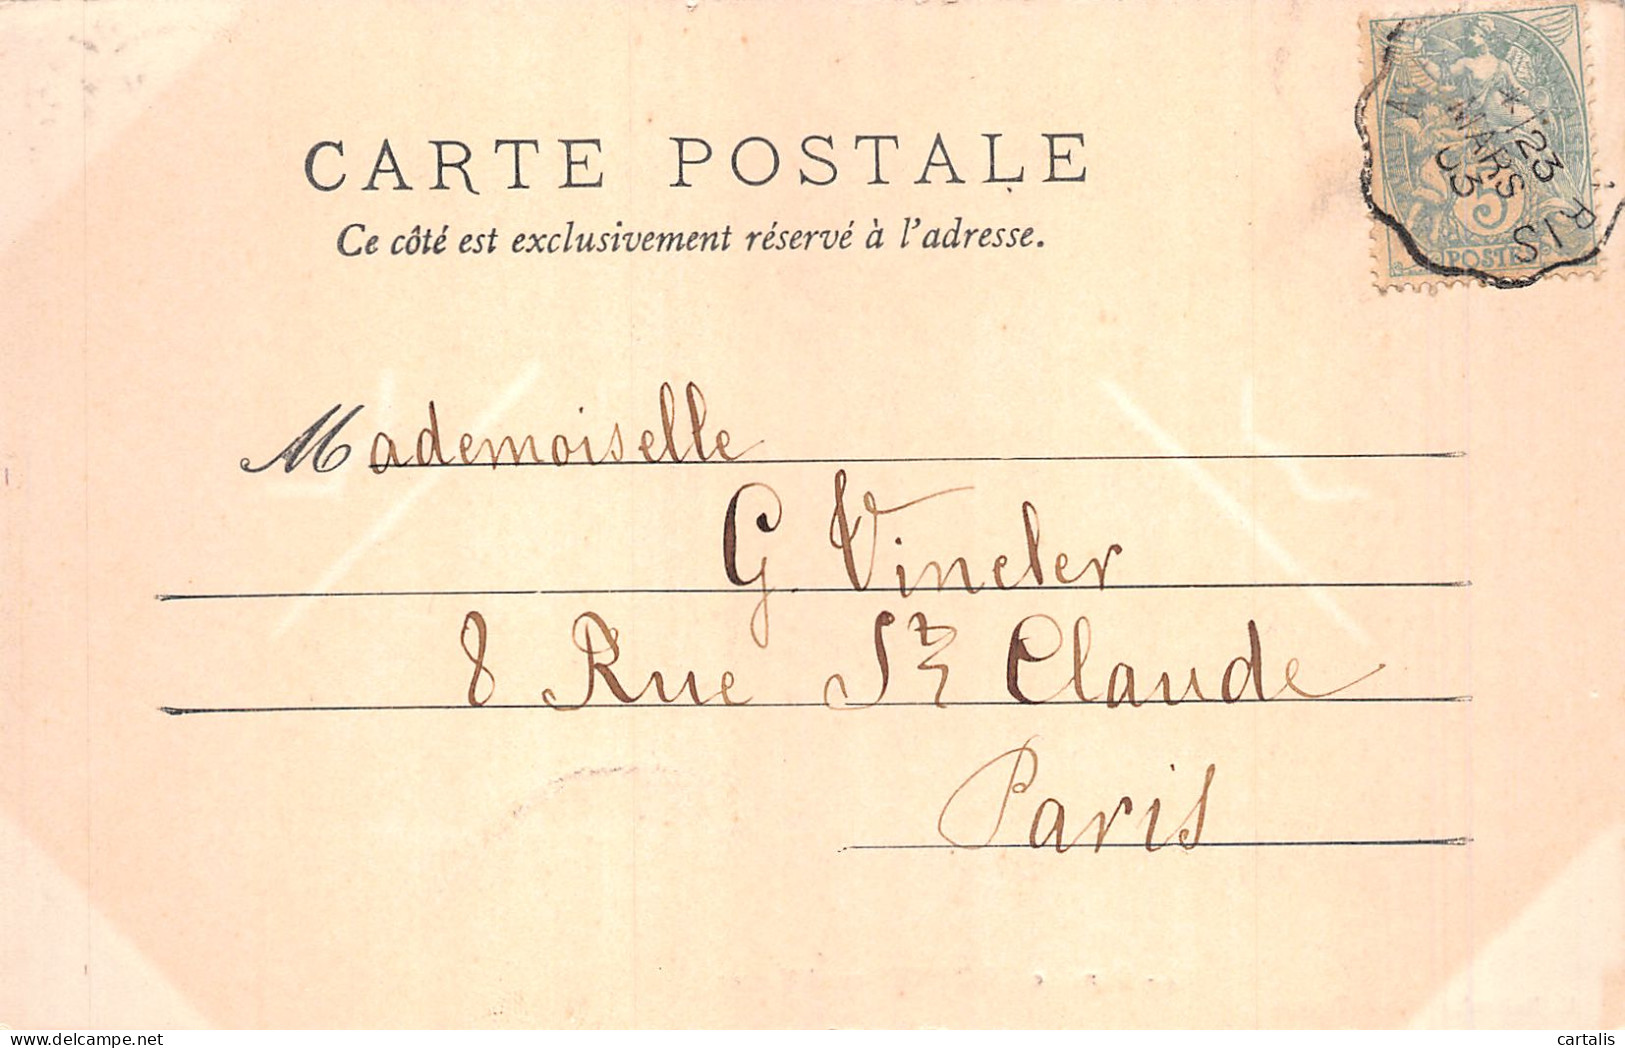 CARTE POSTALE
Ce côté est exclusivement réservé à l'adresse.
* 23
MARS
03
A
RIS
5
POSTES
Mademoiselle
G. Vincler
8 Rue St Claude
Paris
cartalis